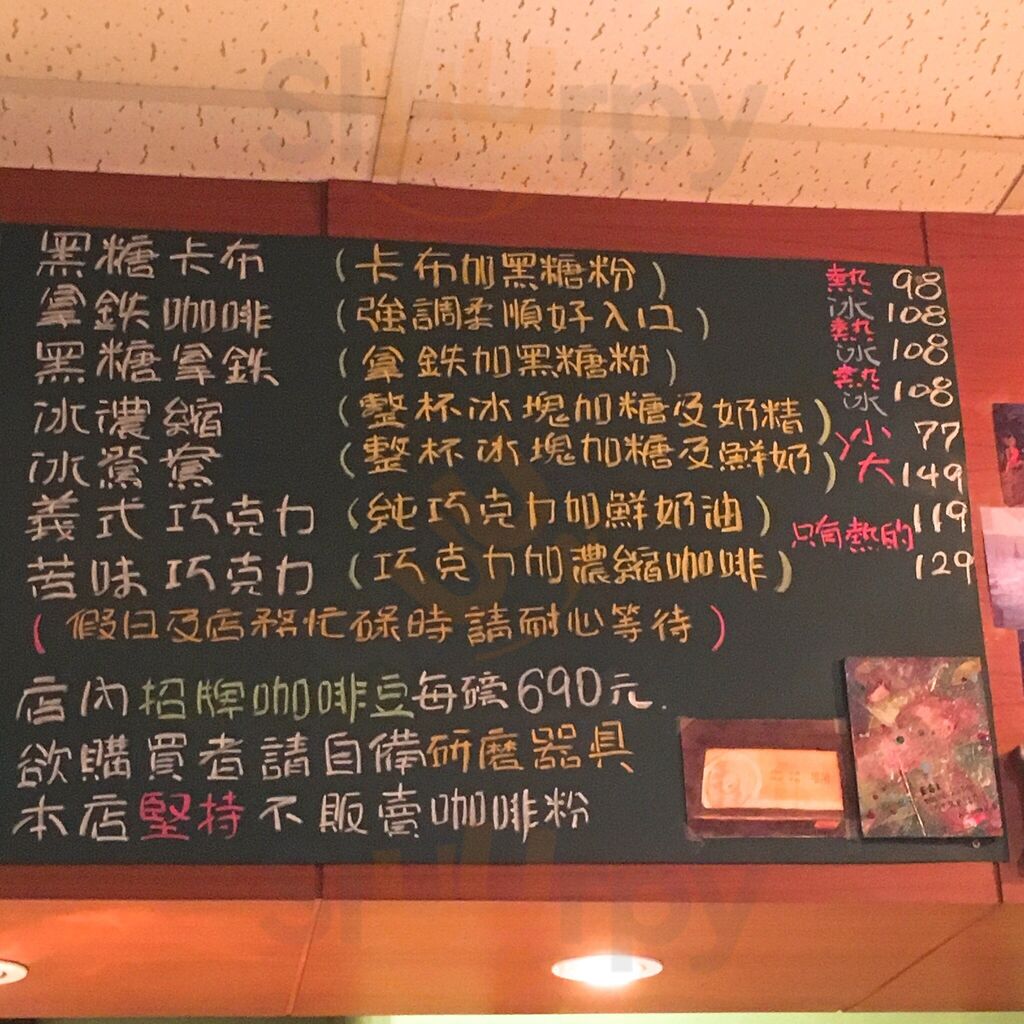 黑糖卡布 (卡布加黑糖粉) 熱 98
拿鉄咖啡 (強調柔順好入口) 冰 熱 108
黑糖拿鉄 (拿鉄加黑糖粉) 冰 熱 108
冰濃縮 (整杯冰塊加糖及奶精) 冰 108
冰鴛鴦 (整杯冰塊加糖及鮮奶) 小 77
大 149
義式巧克力 (純巧克力加鮮奶油) 只有熱的 119
苦味巧克力 (巧克力加濃縮咖啡) 129
(假日及店務忙碌時請耐心等待)
店內招牌咖啡豆每磅690元.
欲購買者請自備研磨器具
本店堅持不販賣咖啡粉
slurpy
slurpy